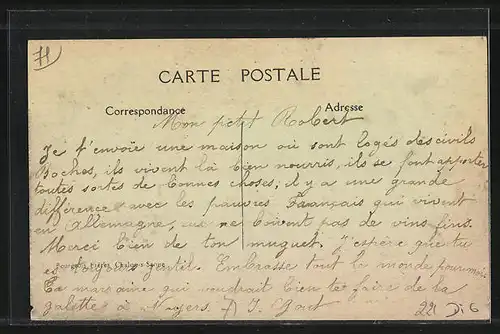 71
CARTE POSTALE
Correspondance
Adresse
Mon petit Robert
Je t'envoie une maison où sont logés des civils
Boches, ils vivent là bien nourris, ils se font apporter
toutes sortes de bonnes choses; il y a une grande
différence avec les pauvres Français qui vivent
en Allemagne, ne boivent pas de vins fins.
Merci bien de ton muguet. J'espère que tu
es toujours gentil. Embrasse tout le monde pour moi
Ta marraine qui voudrait bien te faire de la
galette à
221 Di 6